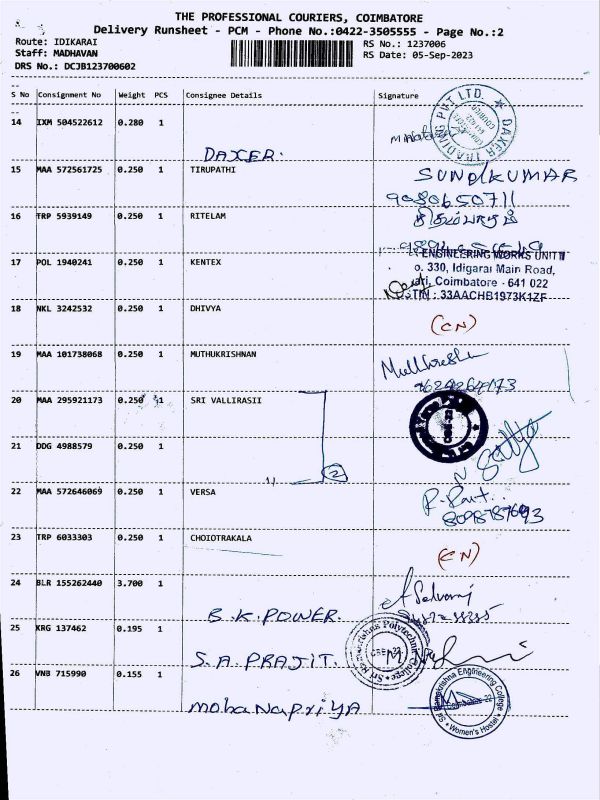 THE PROFESSIONAL COURIERS, COIMBATORE
Delivery Runsheet - PCM - Phone No.:0422-3505555 - Page No.:2
Route: IDIKARAI
Staff: MADHAVAN
DRS No.: DCJB123700602
RS No.: 1237006
RS Date: 05-Sep-2023
S No Consignment No Weight PCS Consignee Details Signature
14 IXM 504522612 0.280 1
DAXER.
DAXER TRADING PVT LTD.
15 MAA 572561725 0.250 1 TIRUPATHI
SUNDIKUMAR
9080650711
16 TRP 5939149 0.250 1 RITELAM
17 POL 1940241 0.250 1 KENTEX
ENGINEERING WORKS UNIT II
o. 330, Idigarai Main Road,
Coimbatore - 641 022
STIN : 33AACHB1973K1ZF
18 NKL 3242532 0.250 1 DHIVYA
(CN)
19 MAA 101738068 0.250 1 MUTHUKRISHNAN
20 MAA 295921173 0.250 1 SRI VALLIRASII
21 DDG 4988579 0.250 1
2
22 MAA 572646069 0.250 1 VERSA
23 TRP 6033303 0.250 1 CHOIOTRAKALA
(CN)
24 BLR 155262440 3.700 1
B.K. POWER.
A Selvaraj
25 KRG 137462 0.195 1
S.A. PRAJIT.
Sri Ramakrishna Polytechnic College
26 VNB 715990 0.155 1
mohanapriya
Sri Ramakrishna Engineering College
Women's Hostel